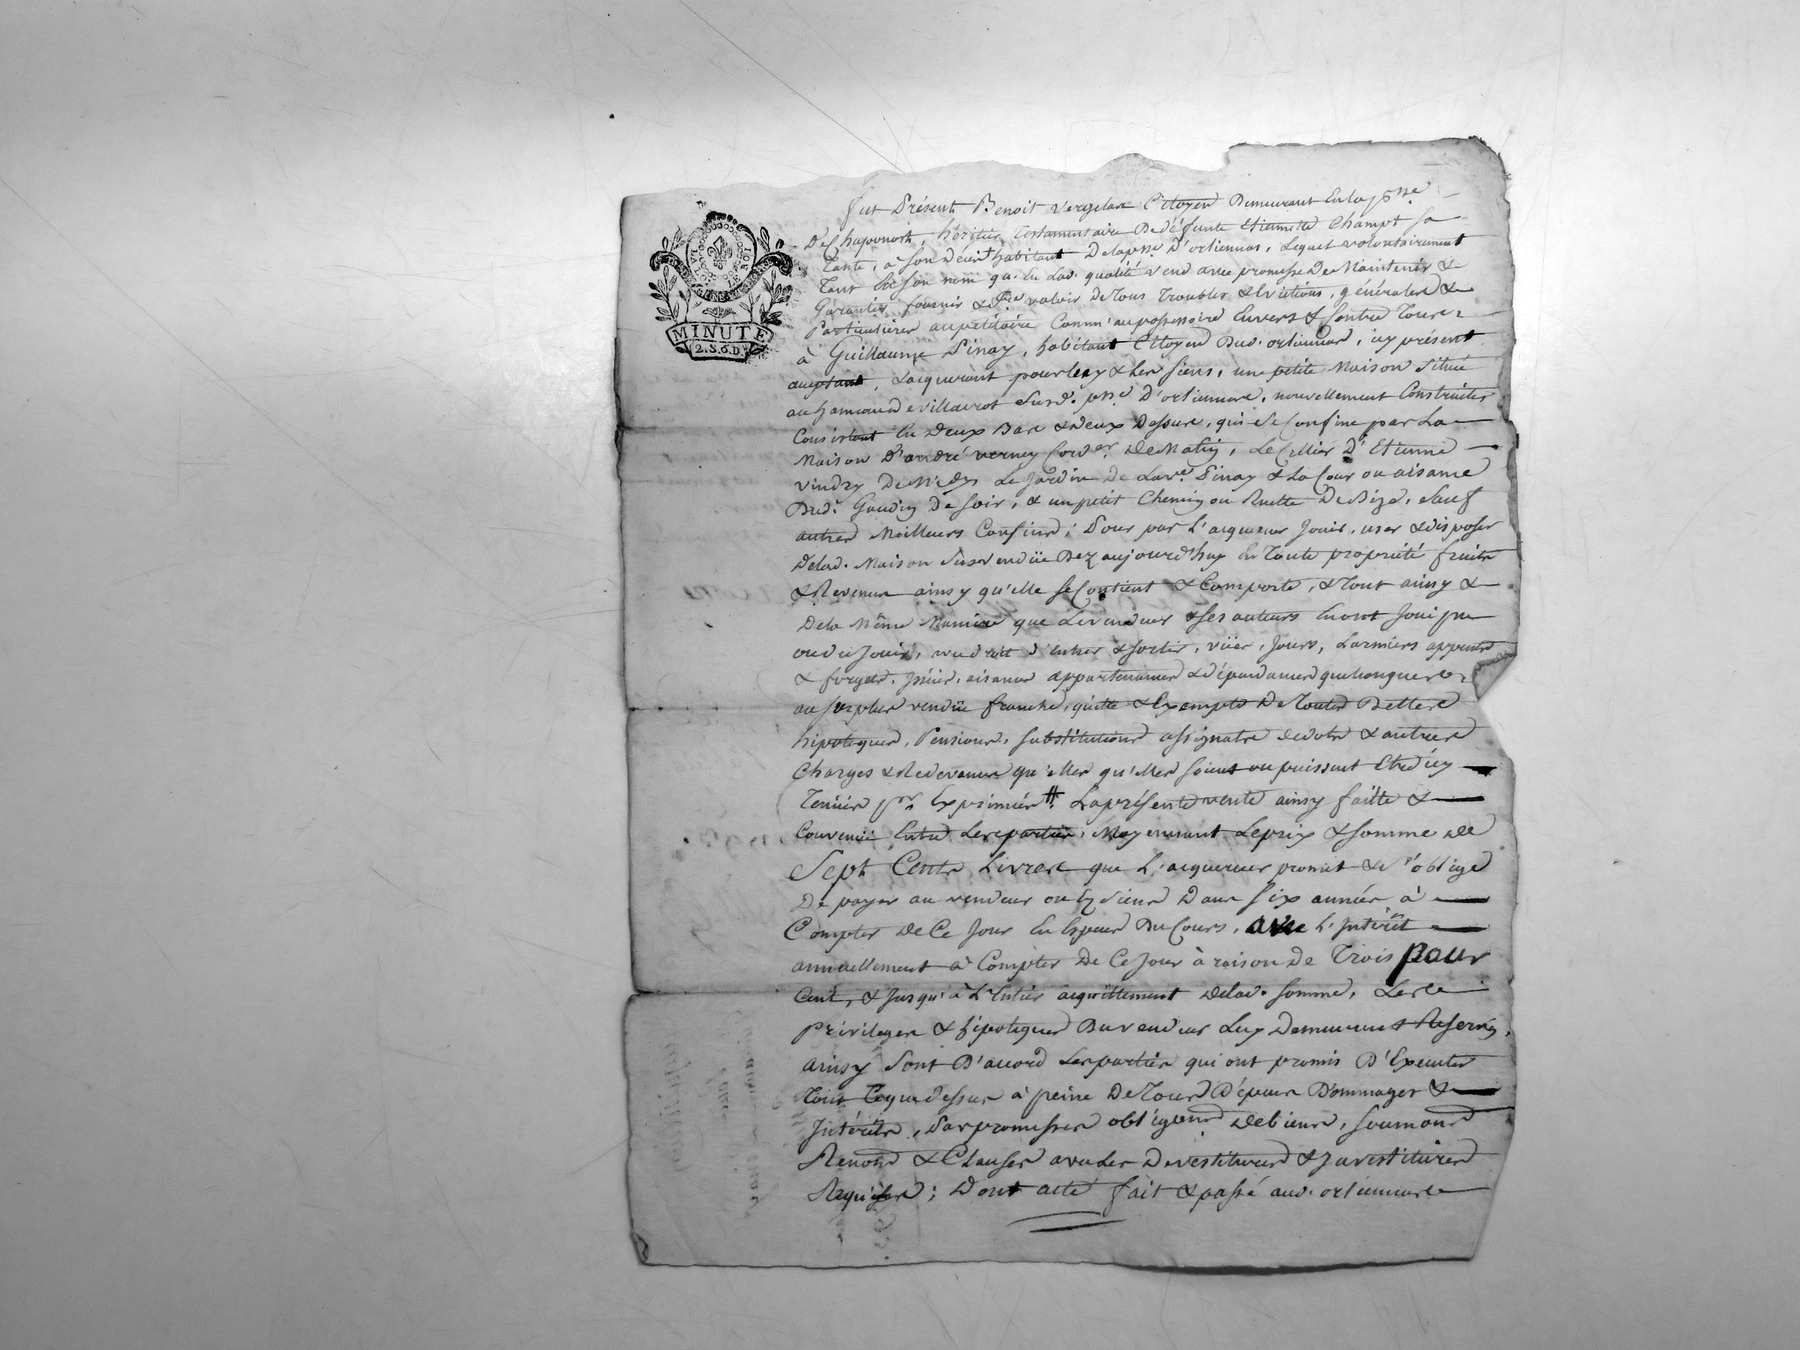 LA LOI ET LE ROI
MINUTE
2.S.6.D.
Fut Présent Benoit Vergelas Citoyen Demeurant En la psse
De Chaponost, héritier testamentaire De défunte Etiennette Champt sa
Tante, a son décèt habitant De lapsse d'orliennas, Lequel volontairement
Tant En son nom qu'En Lad. qualité vend avec promesse De Maintenir &
Garantir, fournir & fre valoir De tous Troubles & Evictions, générales &
Particulieres au petitoire Comm'au possessoire Envers & Contre Tous
à Guillaume Pinay, habitant Citoyen Dud. orliennas, icy présent
acceptant, & acquerant pour luy & les siens, une petite Maison Située
au hameau de villavrot Susd. psse D'orliennas, nouvellement Construitte
Consistant En Deux Bas & deux Dessus, qui Se Confine par La
Maison D'andré verney Cord.er De Matin, Le Cellier D'Etienne
vindry De Midy, Le Jardin De La ve Pinay & La Cour ou aisance
Dud. Gaudin De Soir, & un petit Chemin ou Ruette De Bize, Sauf
autres Meilleurs Confins; Pour par L'acquereur Jouir, user & disposer
Delad. Maison Susvendüe Dez aujourd'huy En Toute propriété fruits
& Revenus ainsy qu'elle se Contient & Comporte, & Tout ainsy &
De la Même Maniere que Le vendeur & ses auteurs En ont Joui pu
ou du Jouir, avec droit d'Entrer & sortir, vües, Jours, Larmiers appends
& forgets, Issües, aisances appartenances & dépendances quelconques
au surplus vendüe franche, quitte & Exempte De Toutes Dettes
hipoteques, Pensions, substitutions assignats de dots & autres
Charges & Redevances qu'elles qu'elles soient ou puissent Etre d'icy
Tenües pr Exprimées. La présente vente ainsy faitte &
Convenüe Entre Les parties, Moyennant Le prix & somme de
Sept Cents Livres que L'acquereur promet & s'oblige
De payer au vendeur ou Es siens Dans Six années à
Compter De Ce Jour En Especes Du Cours, avec L'Intérêt
annuellement à Compter De Ce Jour à raison De Trois pour
Cent, & Jusqu'à L'Entier acquittement Delad. somme, Les
Privileges & hipoteques Du vendeur Luy Demeurant Reservés,
ainsy Sont D'accord Les parties qui ont promis D'Executer
Tout Ceque dessus à peine De Tous Dépens Dommages &
Intérêts, Par promesses obligeans De biens, soumons
Renons & Clauses avec Les Devestitures & Investitures
Requises; Dont acte fait & passé aud. orliennas